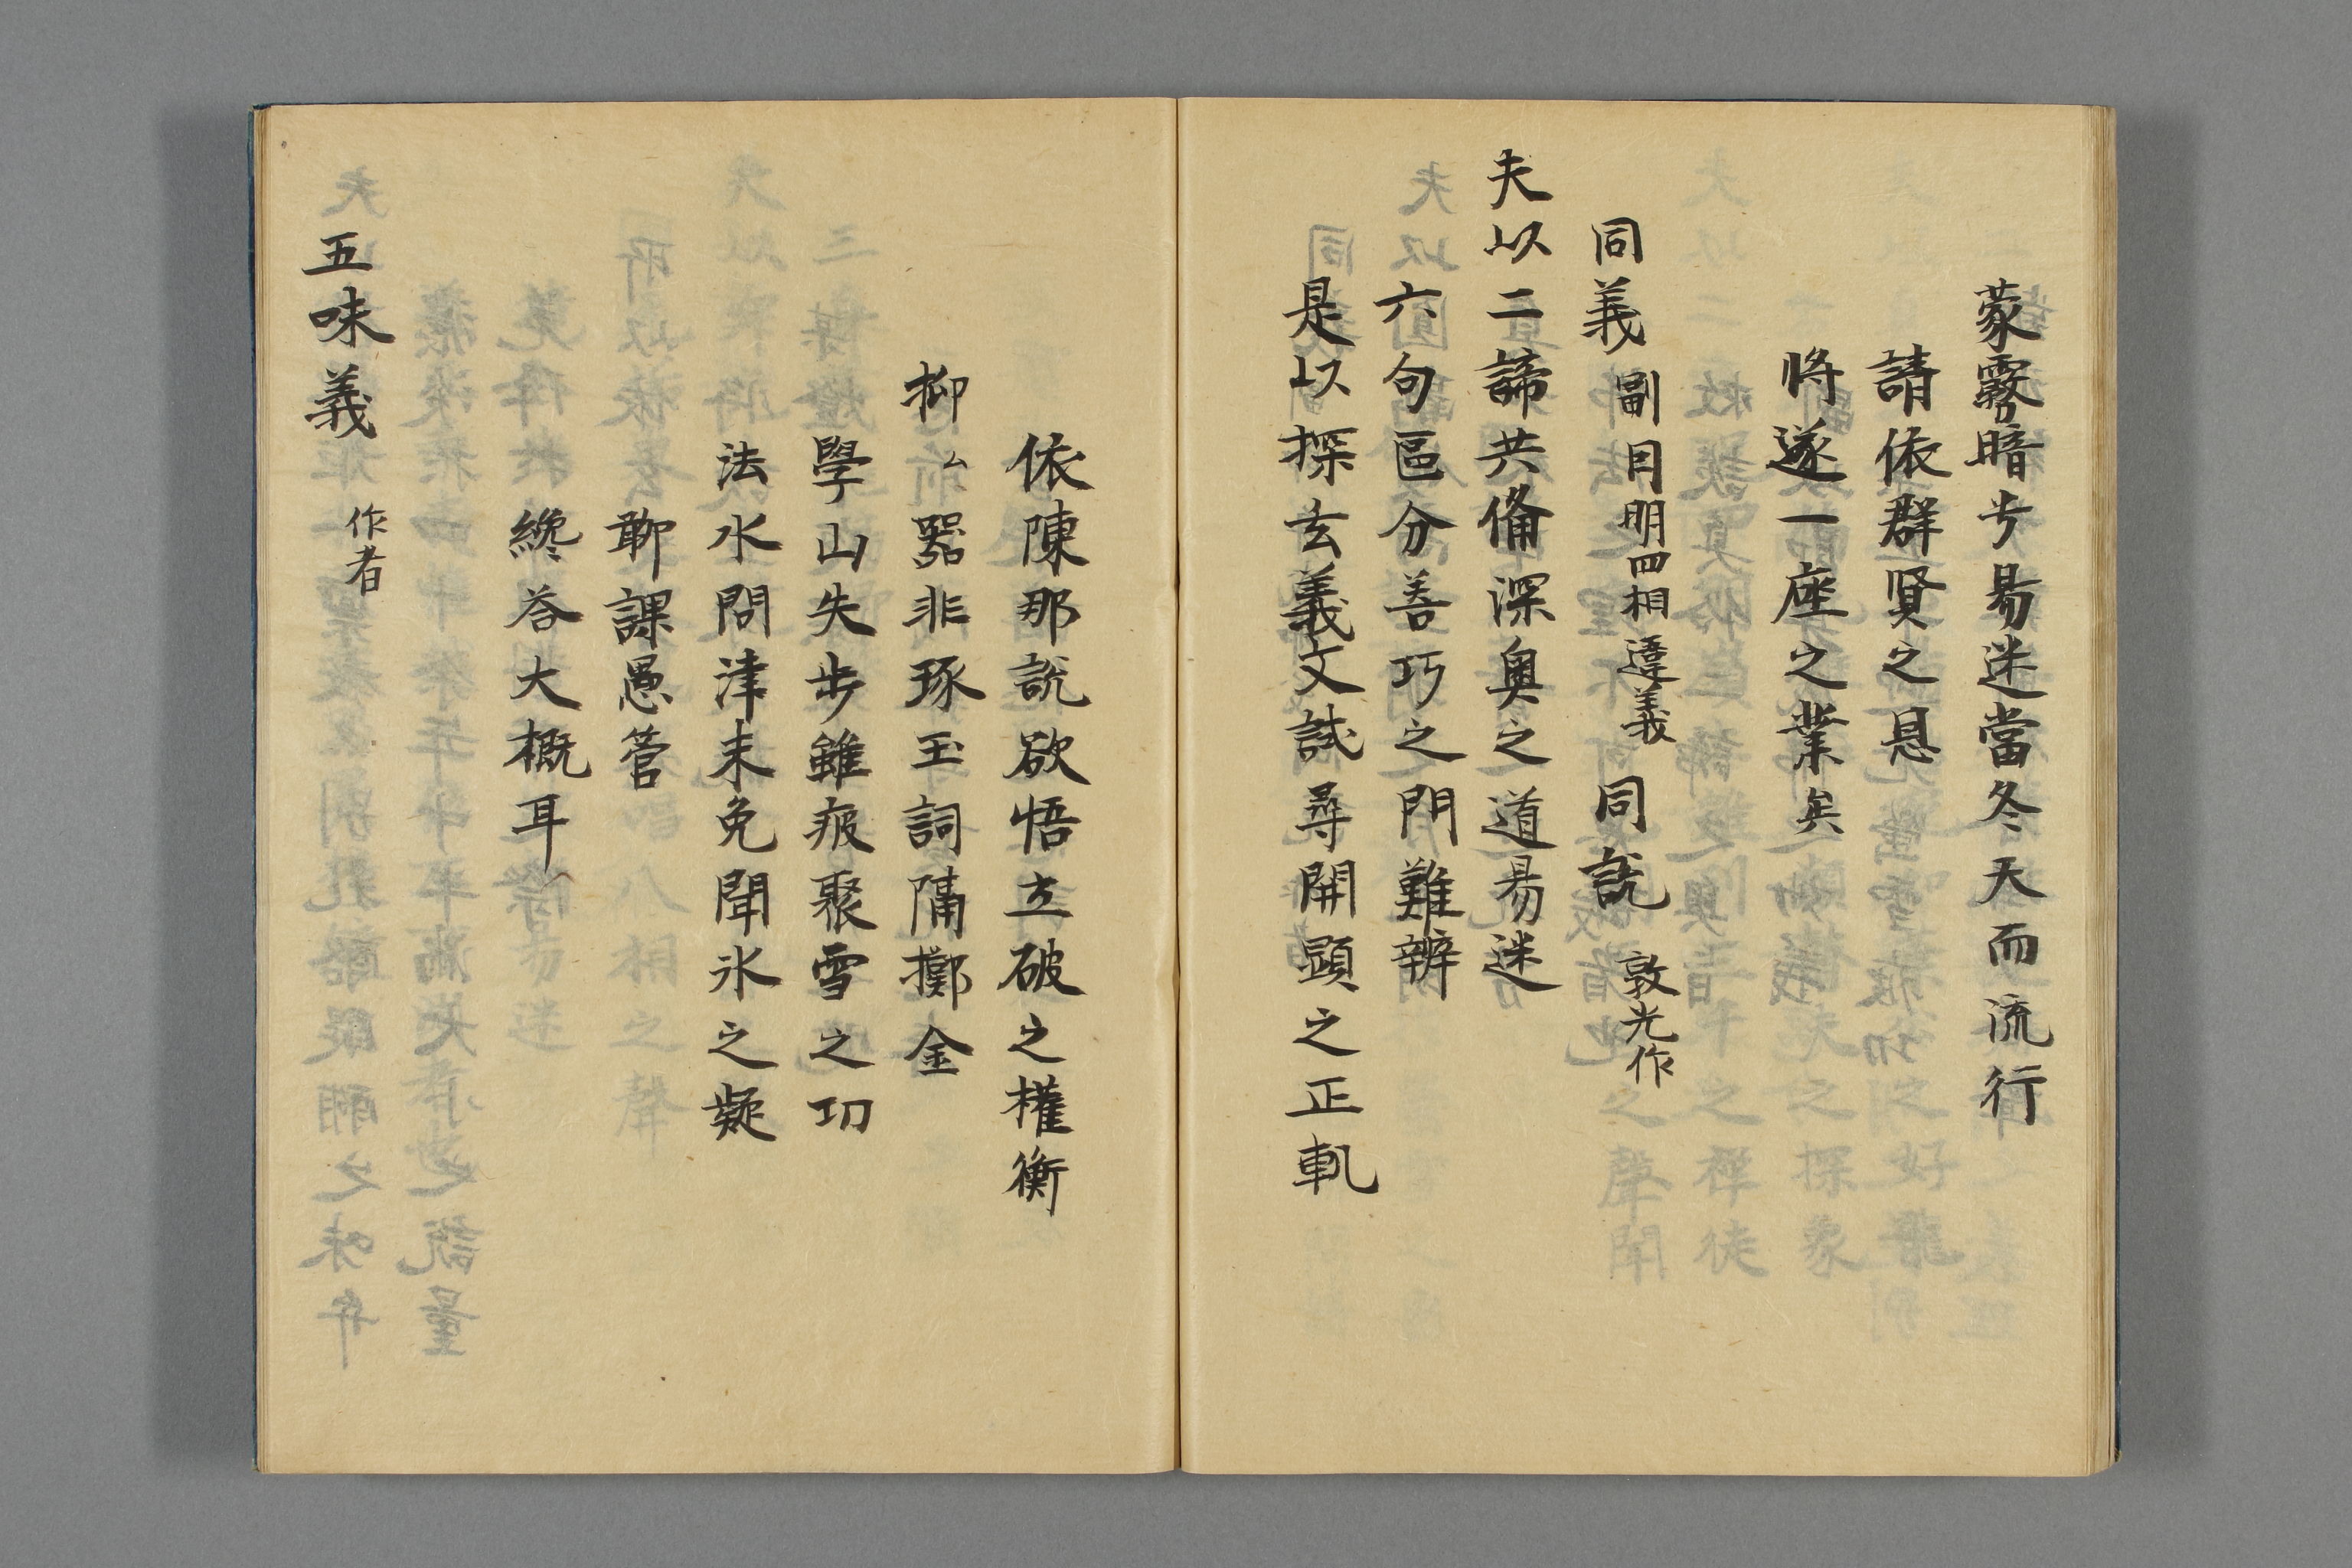 蒙霧暗兮易迷當冬天而流行
請依群賢之恩
將遂一座之業矣
同義 副目明四相違義 同説 敦光作
夫以二諦共備深奧之道易迷
六句區分善巧之門難辨
是以探玄義文誠尋開顕之正軌
依陳那説欲悟立破之權衡
抑ム器非琢玉詞隔擲金
學山失步雖疲聚雪之功
法水問津未免聞氷之疑
聊課愚管
纔答大概耳
五味義 作者